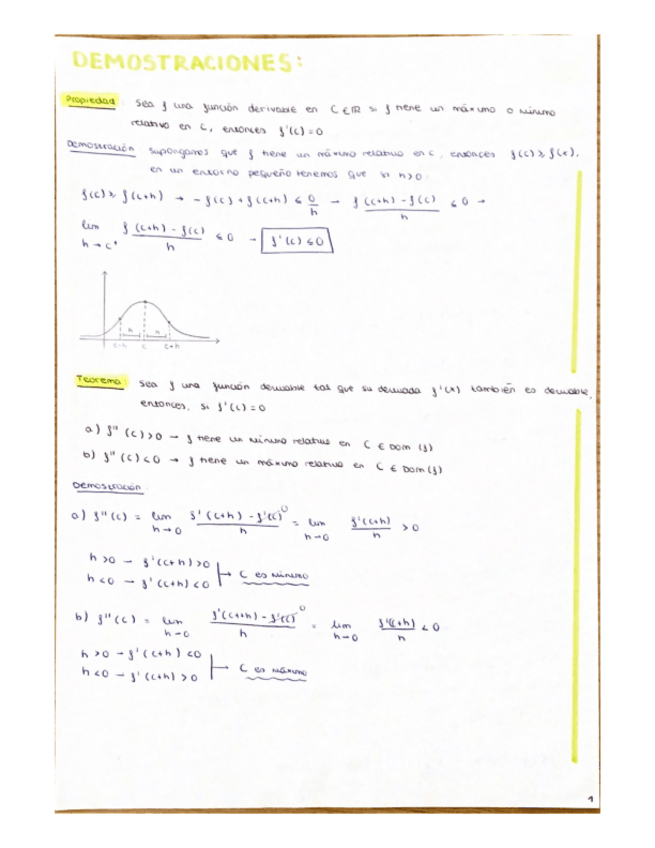 DEMOSTRACIONES:
Propiedad: Sea f una función derivable en C ∈ ℝ si f tiene un máximo o mínimo
relativo en c, entonces f'(c) = 0
Demostración supongamos que f tiene un máximo relativo en c, entonces f(c) ≥ f(x),
en un entorno pequeño tenemos que si h>0:
f(c) ≥ f(c+h) → -f(c) + f(c+h) ≤ 0/h → f(c+h) - f(c)/h ≤ 0 →
lim h→c⁺ f(c+h) - f(c)/h ≤ 0 → f'(c) ≤ 0
h h
c-h c c+h
Teorema: Sea f una función derivable tal que su derivada f'(x) también es derivable,
entonces, si f'(c) = 0
a) f''(c) > 0 → f tiene un mínimo relativo en C ∈ Dom(f)
b) f''(c) < 0 → f tiene un máximo relativo en C ∈ Dom(f)
Demostración:
a) f''(c) = lim h→0 f'(c+h) - f'(c)⁰/h = lim h→0 f'(c+h)/h > 0
h>0 → f'(c+h) > 0
h<0 → f'(c+h) < 0 → C es mínimo
b) f''(c) = lim h→0 f'(c+h) - f'(c)⁰/h = lim h→0 f'(c+h)/h < 0
h>0 → f'(c+h) < 0
h<0 → f'(c+h) > 0 → C es máximo
1